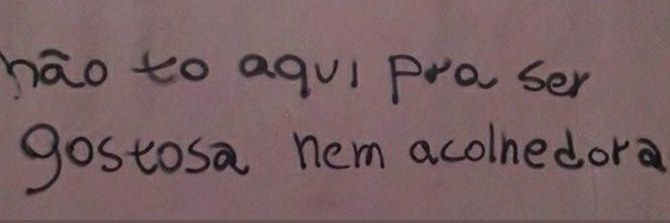 não to aqui pra ser
gostosa nem acolhedora